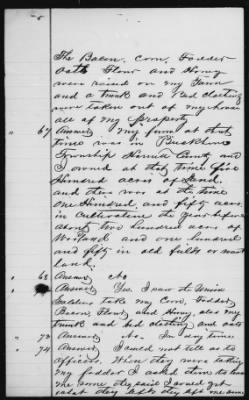 The Bacon, Corn, Fodder
Oats Flour and Honey
were raised on my Farm
and a trunk and Bed clothing
were taken out of my house
all of my property
67 Answer my farm at that
time was in
Township County and
I owned at that time five
Hundred acres of Land,
and there was at the time
One Hundred, and fifty acres
in cultivation the year before
about two hundred acres of
Woodland and one hundred
and fifty in old fields or waste
land.
68 Answer No
Answer Yes. I saw the Union
Soldiers take my Corn, Fodder,
Bacon, Flour, and Honey, also my
trunk and bed clothing and oats
73 Answer No. In day time
74 Answer I could not tell as to
officers. When they were taking
my fodder I asked them to leave
me some they said I would get
what they left they left me some